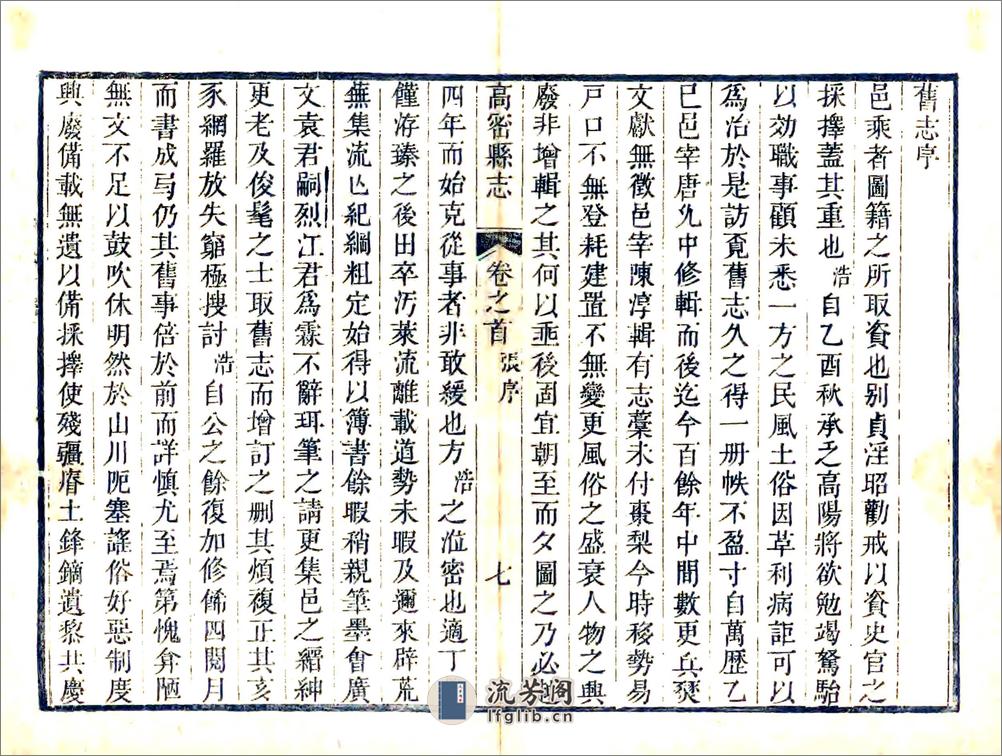 舊志序
邑乘者圖籍之所取資也别貞淫昭勸戒以資史官之
採擇蓋其重也浩自乙酉秋承乏高陽將欲勉竭駑駘
以効職事顧未悉一方之民風土俗因草利病詎可以
爲冶於是訪覔舊志久之得一册帙不盈寸自萬歷乙
巳邑宰唐允中修輯而後迄今百餘年中間數更兵燹
文獻無徵邑宰陳淳輯有志藁未付棗梨今時移勢易
戸口不無登耗建置不無變更風俗之盛衰人物之興
廢非增輯之其何以垂後固宜朝至而夕圖之乃必
高密縣志 卷之首 張序 七
四年而始克從事者非敢緩也方浩之涖密也適丁
饉洊臻之後田卒汚萊流離載道勢未暇及邇來辟荒
蕪集流亾紀綱粗定始得以簿書餘暇稍親筆墨會廣
文袁君嗣烈江君爲霖不辭珥筆之請更集邑之縉紳
更老及俊髦之士取舊志而增訂之刪其煩複正其亥
豕網羅放失窮極搜討浩自公之餘復加修俻四閱月
而書成焉仍其舊事倍於前而詳慎尤至焉第愧弇陋
無文不足以鼓吹休明然於山川阨塞謠俗好惡制度
興廢備載無遺以備採擇使殘疆瘠土鋒鏑遺黎共慶
流芳阁
lfglib.cn